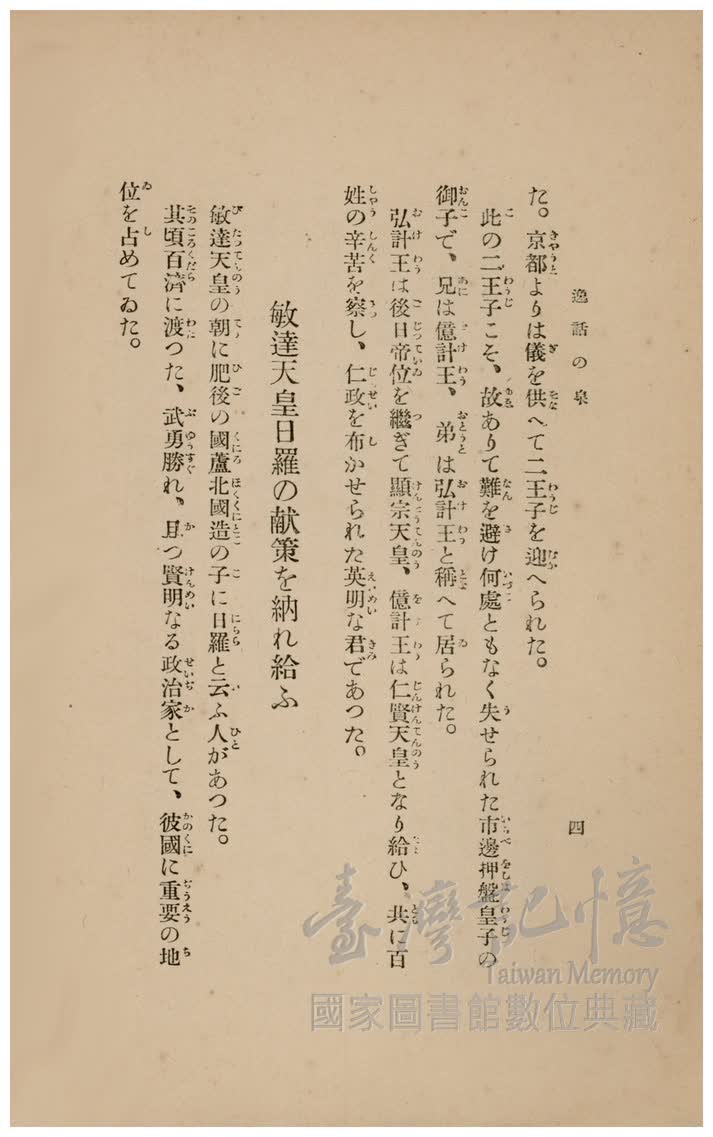 逸話の泉
四
た。京都よりは儀を供へて二王子を迎へられた。
此の二王子こそ、故ありて難を避け何處ともなく失せられた市邊押盤皇子の
御子で、兄は億計王、弟は弘計王と稱へて居られた。
弘計王は後日帝位を繼ぎて顯宗天皇、億計王は仁賢天皇となり給ひ、共に百
姓の辛苦を察し、仁政を布かせられた英明な君であつた。
敏達天皇日羅の献策を納れ給ふ
敏達天皇の朝に肥後の國蘆北國造の子に日羅と云ふ人があつた。
其頃百濟に渡つた、武勇勝れ、且つ賢明なる政治家として、彼國に重要の地
位を占めてゐた。
臺灣記憶
Taiwan Memory
國家圖書館數位典藏